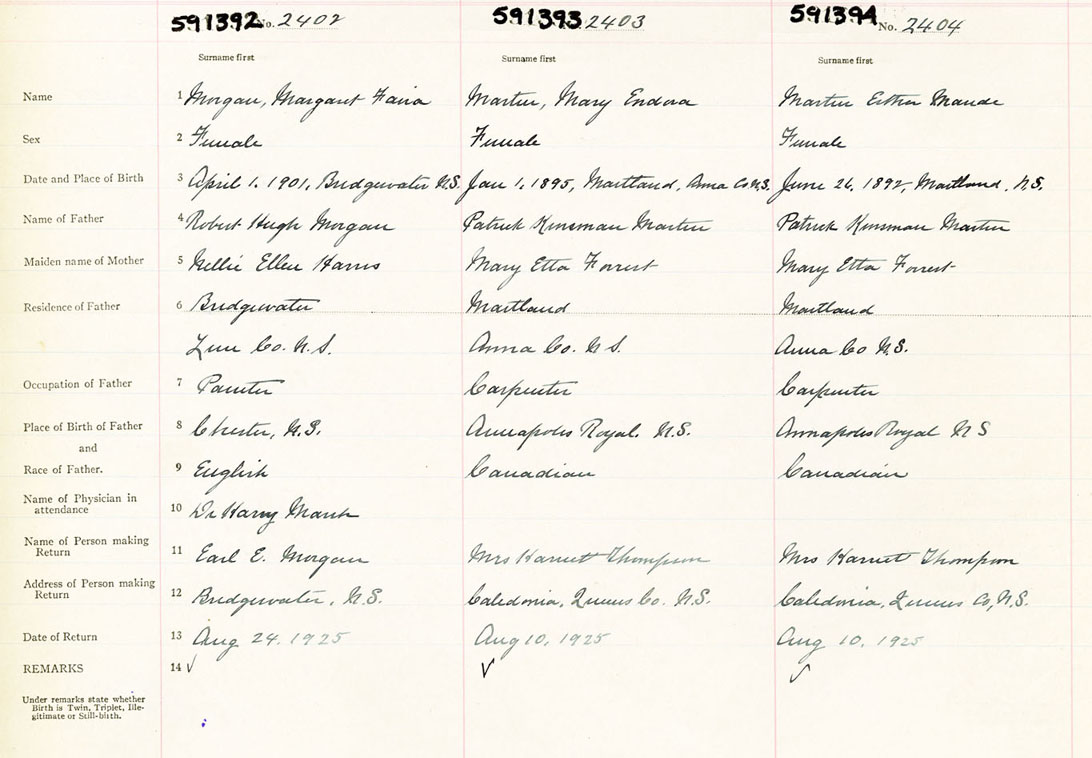 591392 No. 2402 591393 2403 591394 No. 2404
Surname first Surname first Surname first
Name 1 Morgan, Margaret Martin, Mary Endora Martin Esther Maude
Sex 2 Female Female Female
Date and Place of Birth 3 April 1. 1901, Bridgewater N.S. Jan 1, 1895, Maitland, Anna Co N.S. June 26, 1892, Maitland, N.S.
Name of Father 4 Robert Hugh Morgan Patrick Kinsman Martin Patrick Kinsman Martin
Maiden name of Mother 5 Nellie Ellen Harris Mary Etta Forrest Mary Etta Forrest
Residence of Father 6 Bridgewater Maitland Maitland
Lun Co. N.S. Anna Co. N S. Anna Co N.S.
Occupation of Father 7 Painter Carpenter Carpenter
Place of Birth of Father 8 Chester, N.S. Annapolis Royal. N.S. Annapolis Royal N S
and
Race of Father. 9 English Canadian Canadian
Name of Physician in
attendance 10 Dr Harry March
Name of Person making
Return 11 Earl E. Morgan Mrs Harriet Thompson Mrs Harriet Thompson
Address of Person making
Return 12 Bridgewater, N.S. Caledonia, Queens Co. N.S. Caledonia, Queens Co, N.S.
Date of Return 13 Aug 24. 1925 Aug 10, 1925 Aug 10, 1925
REMARKS 14 ✓ ✓ ✓
Under remarks state whether
Birth is Twin, Triplet, Ille-
gitimate or Still-birth.